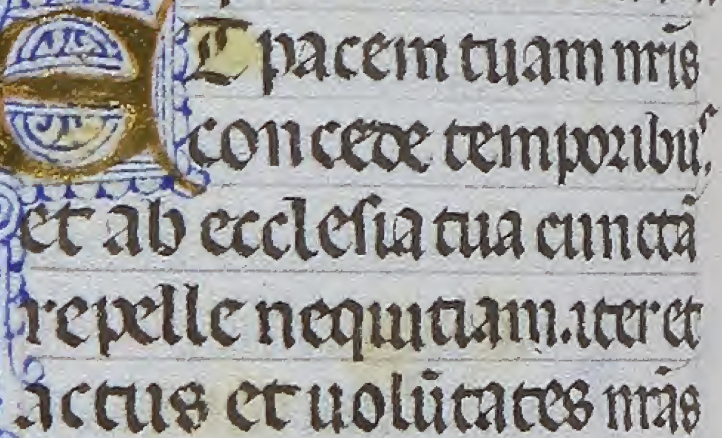 ET pacem tuam nr̄is
concede temporibus
et ab ecclesia tua cunctā
repelle nequitiam. iter et
actus et uolūtates nr̄as